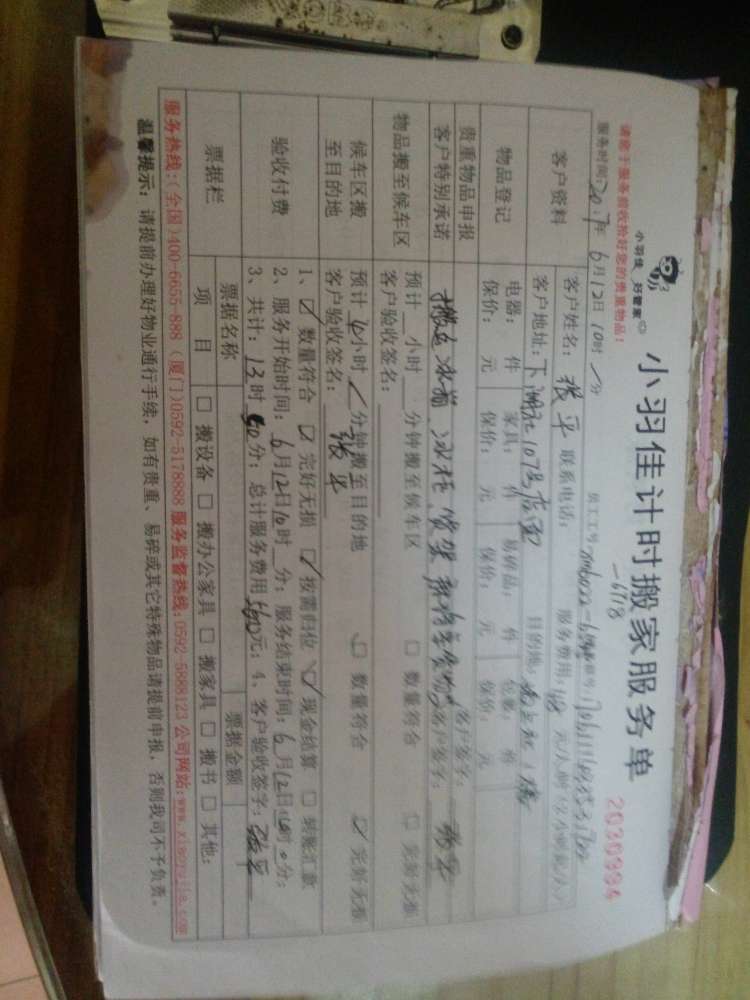 小羽佳 好管家
小羽佳计时搬家服务单
2030994
请您于服务前收拾好您的贵重物品!
-6718
服务时间:2017年6月12日10时 分
员工工号
客户资料
客户姓名:张平 联系电话: 服务费用: 元/小时
客户地址:下湖社107号店面 目的地:
物品登记
电器: 件 家具: 件 易碎品: 件 包裹: 件
保价: 元 保价: 元 保价: 元 保价: 元
贵重物品申报 客户签字:
客户特别承诺 搬运冰箱、冰柜、货架 客户签字:张平
物品搬至候车区
预计 小时 分钟搬至候车区 □ 数量符合 □ 完好无损
客户验收签名:
候车区搬至目的地
预计 小时 分钟搬至目的地 □ 数量符合 ☑ 完好无损
客户验收签名:张平
验收付费
1、☑ 数量符合 ☑ 完好无损 ☑ 按需归位 ☑ 现金结算 □ 转账汇款
2、服务开始时间:6月12日10时 分;服务结束时间:6月12日 时0分;
3、共计:13时 分;总计服务费用 元;4、客户验收签字:张平
票据栏
票据名称 票据金额
项目 □ 搬设备 □ 搬办公家具 □ 搬家具 □ 搬书 □ 其他:
服务热线:(全国)400-6655-888 (厦门)0592-5178888 服务监督热线:0592-5888123 公司网站:www.xiaoyujia.com
温馨提示:请提前办理好物业通行手续,如有贵重、易碎或其它特殊物品请提前申报,否则我司不予负责。